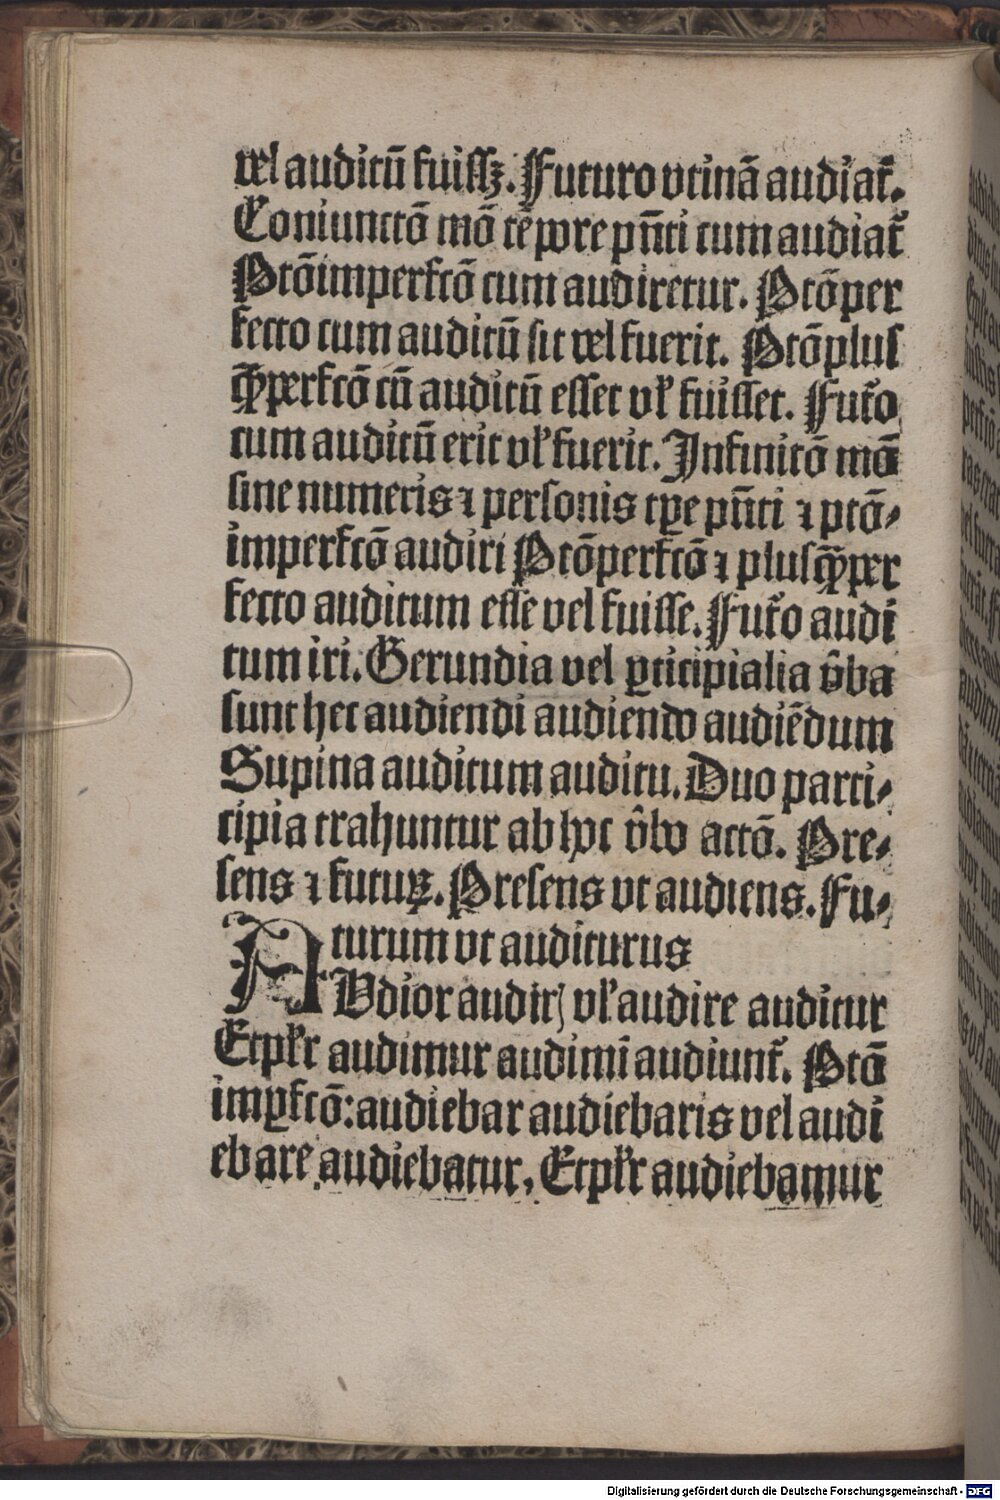 vel auditū fuiſſꝫ. Futuro vtinā audiat᷑.
Coniunctō mō tēpore pn̄ti cum audiat᷑
Ptōimperfctō cum audiretur. Ptōper
fecto cum auditū ſit vel fuerit. Ptōpluſ
ꝙ̄perfctō cū auditū eſſet vl̕ fuiſſet. Fut᷑o
cum auditū erit vl̕ fuerit. Infinitō mō
ſine numeris ⁊ perſonis tꝑe pn̄ti ⁊ ptō⸗
imperfctō audiri Ptōperfctō ⁊ pluſꝙ̄per
fecto auditum eſſe vel fuiſſe. Fut᷑o audi
tum iri. Gerundia vel ꝑticipialia v̄ba
ſunt hec audiendi audiendo audiēdum
Supina auditum auditu. Duo parti⸗
cipia trahuntur ab hoc v̄bo actō. Pre⸗
ſens ⁊ futuꝝ. Preſens vt audiens. Fu⸗
turum vt auditurus
AUdior audirꝭ vl̕ audire auditur
Etpl̕r audimur audimī audiunt᷑. Ptō
imꝑfctō: audiebar audiebaris vel audi
ebare audiebatur, Etpl̕r audiebamur
Digitalisierung gefördert durch die Deutsche Forschungsgemeinschaft - DFG